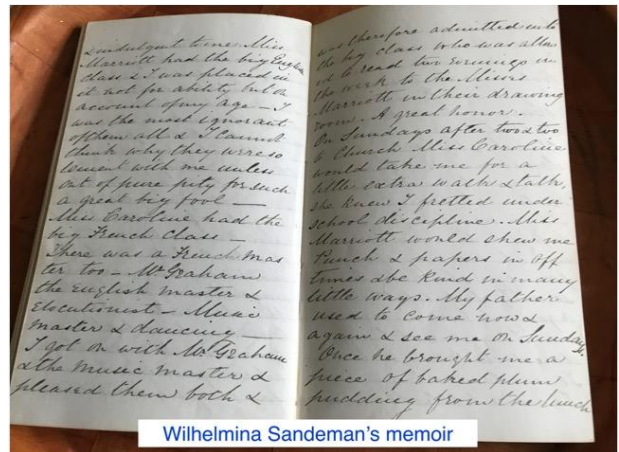 & indulgent to me. Miss
Marriott had the big English
class & I was placed in
it not for ability but on
account of my age — I
was the most ignorant
of them all & I cannot
think why they were so
lenient with me unless
out of pure pity for such
a great big fool —
Miss Caroline had the
big French Class —
There was a French Mas
ter too — Mr Graham
the English master &
Elocutionist — Music
master & dancing —
I got on with Mr Graham
& the music master &
pleased them both &
was therefore admitted into
the big class who was allow
ed to read two evenings in
the week to the Misses
Marriott in their drawing
room. A great honor.
On Sundays after two & two
to Church Miss Caroline
would take me for a
little extra walk & talk,
she knew I fretted under
school discipline. Miss
Marriott would shew me
Punch & papers in off
times & be kind in many
little ways. My father
used to come now &
again & see me on Sundays.
Once he brought me a
piece of baked plum
pudding from the lunch
Wilhelmina Sandeman's memoir